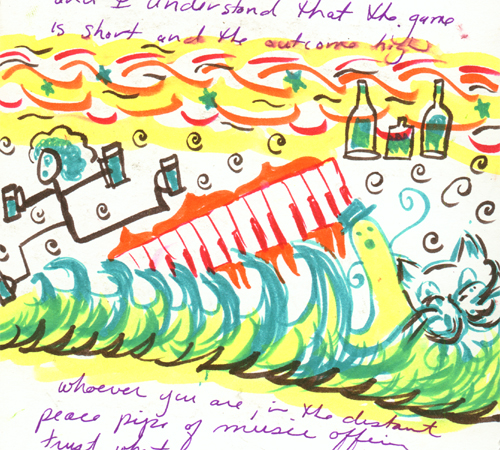 and I understand that the game
is short and the outcome high
whoever you are, in the distant
peace pipe of music offerin
trust what